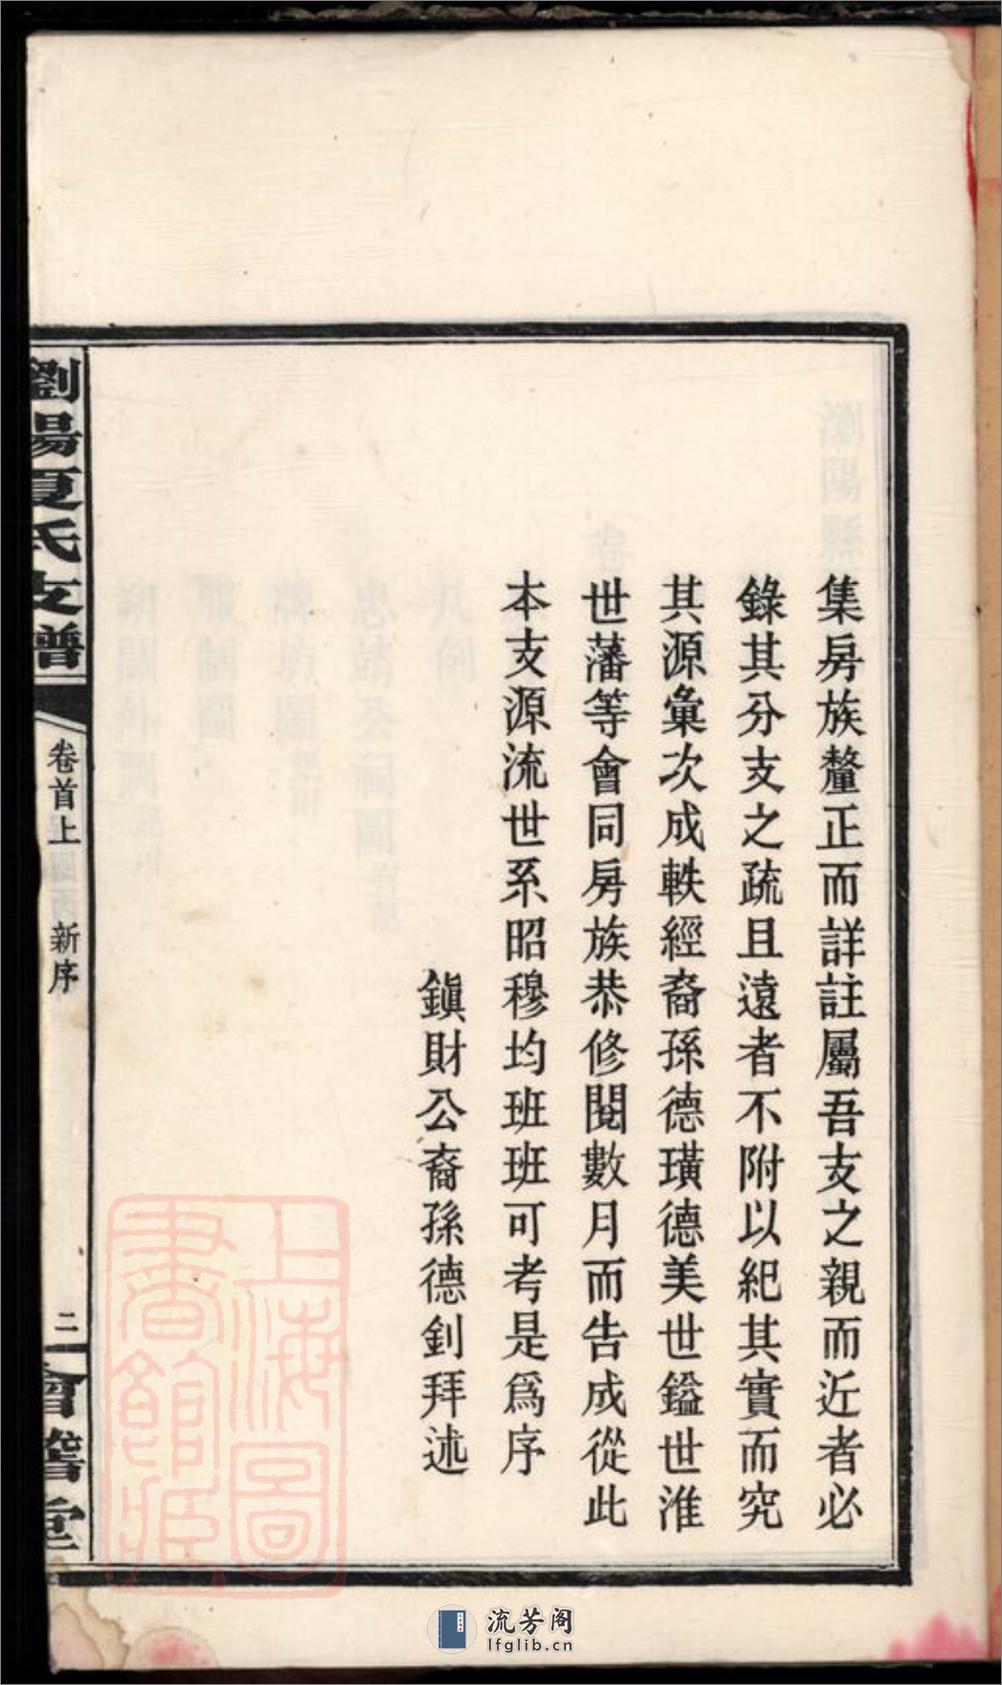 集房族釐正而詳註屬吾支之親而近者必
錄其分支之疏且遠者不附以紀其實而究
其源彙次成軼經裔孫德璜德美世鎰世淮
世藩等會同房族恭修閱數月而告成從此
本支源流世系昭穆均班班可考是爲序
鎮財公裔孫德釗拜述
瀏陽夏氏支譜
卷首上
新序
二
會稽堂
上海圖
書館藏
流芳阁
lfglib.cn